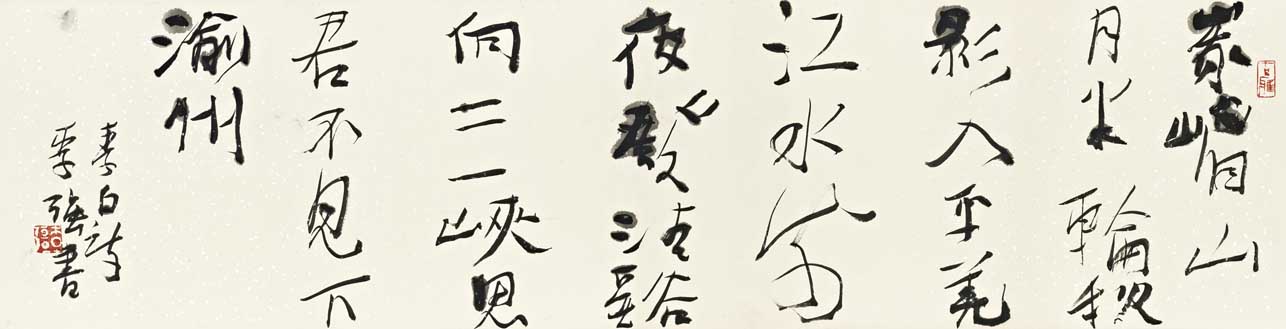 峩嵋山
月半輪秋
影入平羌
江水流
夜發清谿
向三峽思
君不見下
渝州
李白詩
李強書